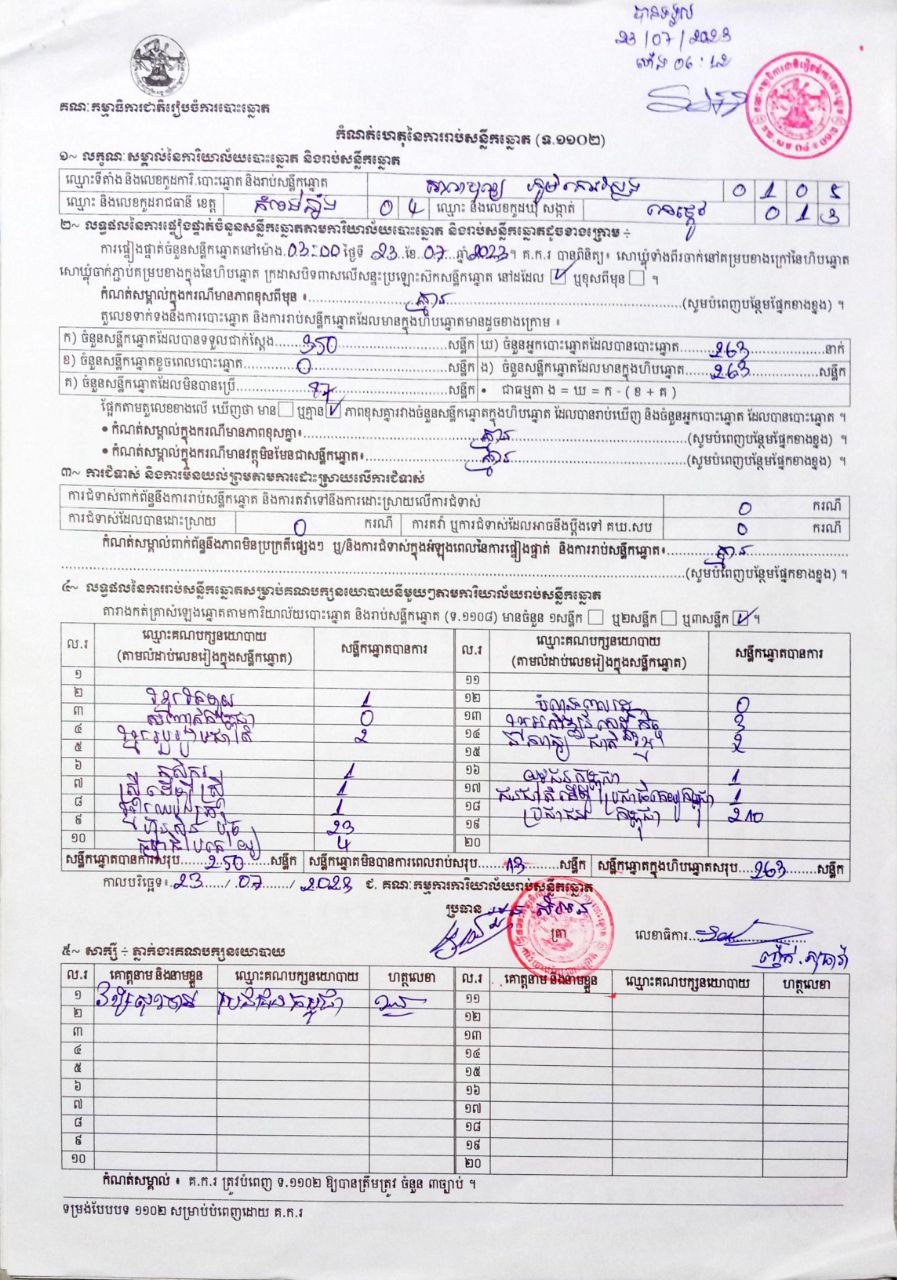 បានទទួល
23/07/2023
ម៉ោង 06:
គណៈកម្មាធិការជាតិរៀបចំការបោះឆ្នោត
កំណត់ហេតុនៃការរាប់សន្លឹកឆ្នោត (ទ.១១០២)
១~ លក្ខណៈសម្គាល់នៃការិយាល័យបោះឆ្នោត និងរាប់សន្លឹកឆ្នោត
ឈ្មោះទីតាំង និងលេខកូដការិ.បោះឆ្នោត និងរាប់សន្លឹកឆ្នោត សាលាបុណ្យ ភូមិ 0 1 0 5
ឈ្មោះ និងលេខកូដរាជធានី ខេត្ត កំពង់ឆ្នាំង 0 4 ឈ្មោះ និងលេខកូដឃុំ សង្កាត់ 0 1 3
២~ លទ្ធផលនៃការផ្ទៀងផ្ទាត់ចំនួនសន្លឹកឆ្នោតតាមការិយាល័យបោះឆ្នោត និងរាប់សន្លឹកឆ្នោតដូចខាងក្រោម ÷
ការផ្ទៀងផ្ទាត់ចំនួនសន្លឹកឆ្នោតនៅម៉ោង 03:00 ថ្ងៃទី 23 ខែ 07 ឆ្នាំ 2023។ គ.ក.រ បានពិនិត្យ៖ សោឃ្លុំទាំងពីរចាក់នៅគម្របខាងក្រៅនៃហិបឆ្នោត
សោឃ្លុំចាក់ភ្ជាប់គម្របខាងក្នុងនៃហិបឆ្នោត ក្រដាសបិទពាសលើសន្ទះប្រឡោះស៊កសន្លឹកឆ្នោត នៅដដែល ☑ ឬខុសពីមុន ☐ ។
កំណត់សម្គាល់ក្នុងករណីមានភាពខុសពីមុន ៖ គ្មាន (សូមបំពេញបន្ថែមផ្នែកខាងខ្នង) ។
តួលេខទាក់ទងនឹងការបោះឆ្នោត និងការរាប់សន្លឹកឆ្នោតដែលមានក្នុងហិបឆ្នោតមានដូចខាងក្រោម ៖
ក) ចំនួនសន្លឹកឆ្នោតដែលបានទទួលជាក់ស្តែង 350 សន្លឹក ឃ) ចំនួនអ្នកបោះឆ្នោតដែលបានបោះឆ្នោត 263 នាក់
ខ) ចំនួនសន្លឹកឆ្នោតខូចពេលបោះឆ្នោត 0 សន្លឹក ង) ចំនួនសន្លឹកឆ្នោតដែលមានក្នុងហិបឆ្នោត 263 សន្លឹក
គ) ចំនួនសន្លឹកឆ្នោតដែលមិនបានប្រើ 87 សន្លឹក • ជាធម្មតា ង = ឃ = ក - ( ខ + គ )
ផ្អែកតាមតួលេខខាងលើ ឃើញថា មាន ☐ ឬគ្មាន ☑ ភាពខុសគ្នារវាងចំនួនសន្លឹកឆ្នោតក្នុងហិបឆ្នោត ដែលបានរាប់ឃើញ និងចំនួនអ្នកបោះឆ្នោត ដែលបានបោះឆ្នោត ។
• កំណត់សម្គាល់ក្នុងករណីមានភាពខុសគ្នា៖ គ្មាន (សូមបំពេញបន្ថែមផ្នែកខាងខ្នង) ។
• កំណត់សម្គាល់ក្នុងករណីមានវត្ថុមិនមែនជាសន្លឹកឆ្នោត៖ គ្មាន (សូមបំពេញបន្ថែមផ្នែកខាងខ្នង) ។
៣~ ការជំទាស់ និងការមិនយល់ព្រមតាមការដោះស្រាយលើការជំទាស់
ការជំទាស់ពាក់ព័ន្ធនឹងការរាប់សន្លឹកឆ្នោត និងការតវ៉ាទៅនឹងការដោះស្រាយលើការជំទាស់ 0 ករណី
ការជំទាស់ដែលបានដោះស្រាយ 0 ករណី ការតវ៉ា ឬការជំទាស់ដែលអាចនឹងប្តឹងទៅ គឃ.សប 0 ករណី
កំណត់សម្គាល់ពាក់ព័ន្ធនឹងភាពមិនប្រក្រតីផ្សេងៗ ឬ/និងការជំទាស់ក្នុងអំឡុងពេលនៃការផ្ទៀងផ្ទាត់ និងការរាប់សន្លឹកឆ្នោត៖ គ្មាន
(សូមបំពេញបន្ថែមផ្នែកខាងខ្នង) ។
៤~ លទ្ធផលនៃការរាប់សន្លឹកឆ្នោតសម្រាប់គណបក្សនយោបាយនីមួយៗតាមការិយាល័យរាប់សន្លឹកឆ្នោត
តារាងកត់ត្រាសំឡេងឆ្នោតតាមការិយាល័យបោះឆ្នោត និងរាប់សន្លឹកឆ្នោត (ទ.១១០៨) មានចំនួន ១សន្លឹក ☐ ឬ២សន្លឹក ☐ ឬ៣សន្លឹក ☑ ។
ល.រ ឈ្មោះគណបក្សនយោបាយ (តាមលំដាប់លេខរៀងក្នុងសន្លឹកឆ្នោត) សន្លឹកឆ្នោតបានការ ល.រ ឈ្មោះគណបក្សនយោបាយ (តាមលំដាប់លេខរៀងក្នុងសន្លឹកឆ្នោត) សន្លឹកឆ្នោតបានការ
១ ១១
២ 1 ១២ 0
៣ 0 ១៣ 3
៤ 2 ១៤ 2
៥ ១៥
៦ កសិករ 1 ១៦ យុវជនកម្ពុជា 1
៧ ស្ត្រីដើម្បីស្ត្រី 1 ១៧ 1
៨ 1 ១៨ ប្រជាជន កម្ពុជា 210
៩ ហ្វ៊ុនស៊ិនប៉ិច 23 ១៩
១០ 4 ២០
សន្លឹកឆ្នោតបានការសរុប 250 សន្លឹក សន្លឹកឆ្នោតមិនបានការពេលរាប់សរុប 13 សន្លឹក សន្លឹកឆ្នោតក្នុងហិបឆ្នោតសរុប 263 សន្លឹក
កាលបរិច្ឆេទ៖ 23 / 07 / 2023 ជ. គណៈកម្មការការិយាល័យរាប់សន្លឹកឆ្នោត
ប្រធាន
ត្រា លេខាធិការ
៥~ សាក្សី ÷ ភ្នាក់ងារគណបក្សនយោបាយ
ល.រ គោត្តនាម និងនាមខ្លួន ឈ្មោះគណបក្សនយោបាយ ហត្ថលេខា ល.រ គោត្តនាម និងនាមខ្លួន ឈ្មោះគណបក្សនយោបាយ ហត្ថលេខា
១ ប្រជាជនកម្ពុជា ១១
២ ១២
៣ ១៣
៤ ១៤
៥ ១៥
៦ ១៦
៧ ១៧
៨ ១៨
៩ ១៩
១០ ២០
កំណត់សម្គាល់ ៖ គ.ក.រ ត្រូវបំពេញ ទ.១១០២ ឱ្យបានត្រឹមត្រូវ ចំនួន ៣ច្បាប់ ។
ទម្រង់បែបបទ ១១០២ សម្រាប់បំពេញដោយ គ.ក.រ